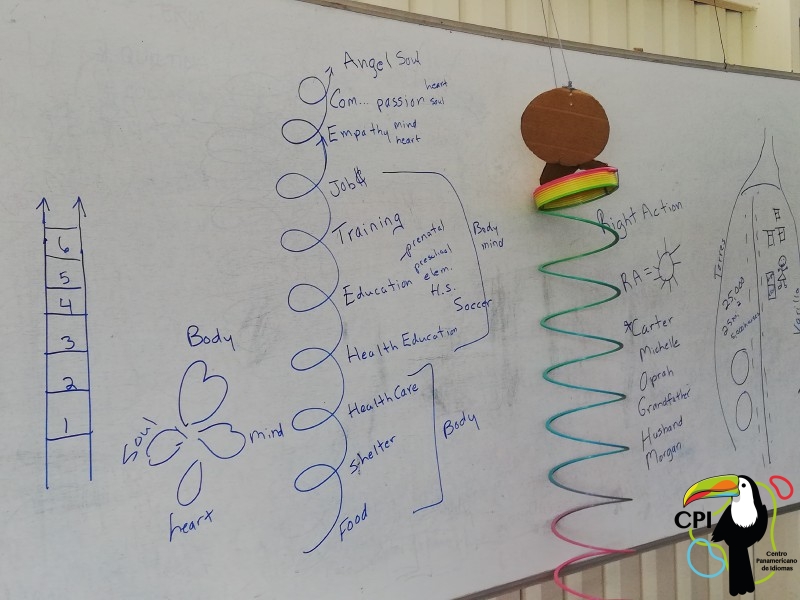 6
5
4
3
2
1
Body
Soul
mind
heart
Angel Soul
Com... passion heart soul
Empathy mind heart
Job$
Training
Education prenatal
preschool
elem.
H.S.
Soccer
Body
mind
Health Education
Health Care
Shelter
Food
Body
Right Action
RA =
*Carter
Michelle
Oprah
Grandfather
Husband
Morgan
Torres
25.000
25m²
CPI
Centro
Panamericano
de Idiomas